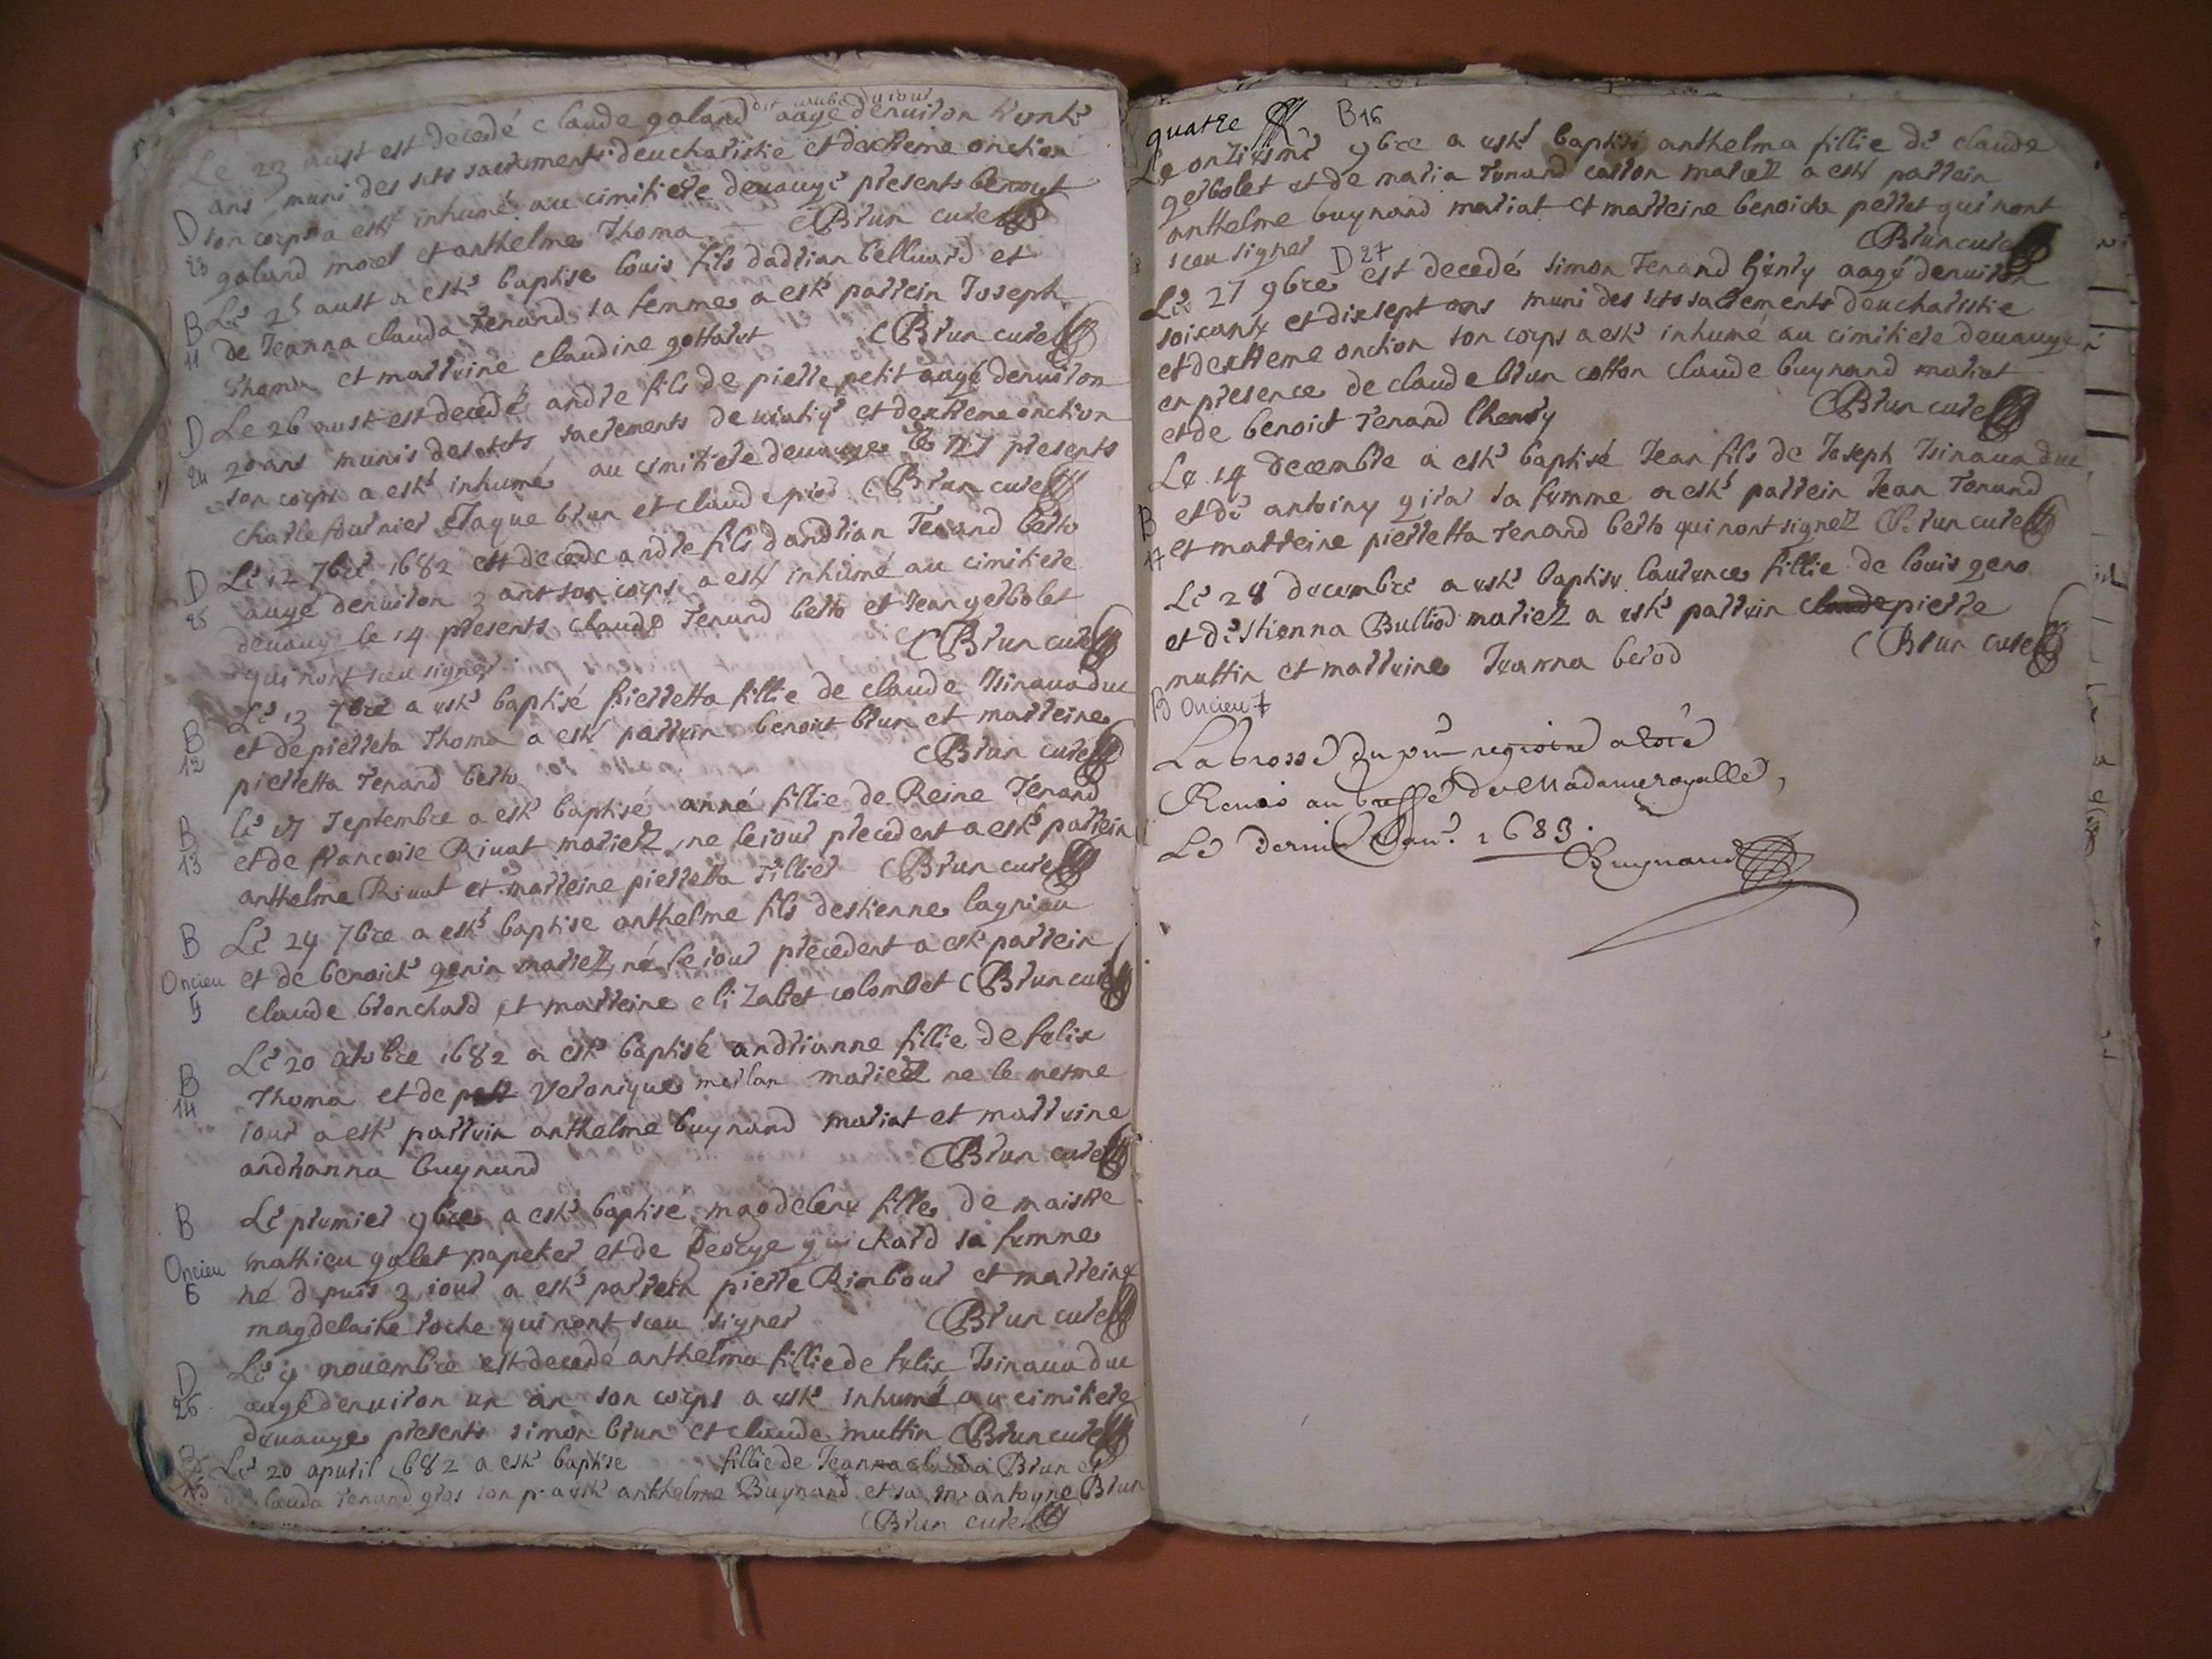 dit aube du iour
Le 23 aust est decedé claude galand aagé denuiron trente
ans muni des scts sacrements deucharistie et dextreme onction
D
23
son corps a esté inhumé au cimitiere deuauge presents benoyt
galand morel et anthelme Thoma Brun cure
B
11
Le 25 aust a esté baptise louis fils dadrian belluard et
de Jeanna clauda Tenand sa femme a esté parrein Joseph
Thoma et marreine claudine gottaret Brun cure
D
24
Le 26 aust est decedé andre fils de pierre petit aagé denuiron
20 ans munis des scts sacrements de uiatiq et dextreme onction
son corps a esté inhumé au cimitiere deuauge le 27 presents
charle fournier Jaque brun et claude piod Brun cure
D
25
Le 12 7bre 1682 est decede andre fils dandrian Tenand berto
aagé denuiron 3 ans son corps a esté inhumé au cimitiere
deuauge le 14 presents claude Tenand berto et Jean gerbolet
qui nont sceu signer Brun cure
B
12
Le 13 7bre a esté baptisé pierretta fillie de claude Tsinauaduc
et de pierreta Thoma a esté parrein benoit brun et marreine
pierretta Tenand berto Brun cure
B
13
le 17 Septembre a esté baptisé anné fillie de Reine Tenand
et de francoise Riuat mariez, ne le iour precedent a esté parrein
anthelme Riuat et marreine pierretta Tillier Brun cure
B
Oncieu
5
Le 24 7bre a esté baptise anthelme fils destienne lagnieu
et de benoicte genin mariez, né le iour precedent a esté parrein
claude blonchard et marreine elizabet colombet Brun cure
B
14
Le 20 octobre 1682 a esté baptisé andrianne fillie de felix
Thoma et de Veronique merlan mariez ne le mesme
iour a esté parrein anthelme buynand mariat et marreine
andrianna buynand Brun cure
B
Oncieu
6
Le premier 9bre a esté baptisé magdelene fille de maistre
mathieu galet papetier et de George guichard sa femme
né depuis 3 iour a esté parrein pierre Rimbour et marreine
magdelaine roche qui nont sceu signer Brun cure
D
26
Le 9 nouembre est decedé anthelma fillie de felix Tsinauaduc
aagé denuiron un an son corps a esté inhumé au cimitiere
deuauge presents simon brun et claude muttin Brun cure
B
15
Le 20 apuril 1682 a esté baptise fillie de Jean Brun et
de clauda Tenand gros son p. a esté anthelme Buynand et sa m. antoyne Brun
Brun cure
quatre B16
Le onziesme 9bre a esté baptisé anthelma fillie de claude
gerbolet et de maria Tenand catton mariez a esté parrein
anthelme buynand mariat et marreine benoicta perret qui nont
sceu signer Brun cure
D 27
Le 27 9bre est decedé simon Tenand henry aagé denuiron
soixante et dixsept ans muni des scts sacrements deucharistie
et dextreme onction son corps a esté inhumé au cimitiere deuauge
en presence de claude brun cotton claude buynand mariat
et de benoict Tenand lhenry Brun cure
B
17
Le 14 decembre a esté baptisé Jean fils de Joseph Tsinauaduc
et de antoiny girar sa femme a esté parrein Jean Tenand
et marreine pierretta Tenand berto qui nont signez Brun cure
Le 28 decembre a esté baptise laurence fillie de louis geno
et de stienna Bulliod mariez a esté parrein claude pierre
muttin et marreine Jeanna berod Brun cure
B Oncieu 7
La brosse du pnt registre a esté
Remis au greffe de Madame royalle,
Le dernier Janr. 1683.
Buynand